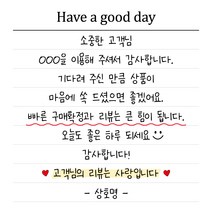 Have a good day
소중한 고객님
OOO을 이용해 주셔서 감사합니다.
기다려 주신 만큼 상품이
마음에 쏙 드셨으면 좋겠어요.
빠른 구매확정과 리뷰는 큰 힘이 됩니다.
오늘도 좋은 하루 되세요
감사합니다!
♥ 고객님의 리뷰는 사랑입니다 ♥
- 상호명 -